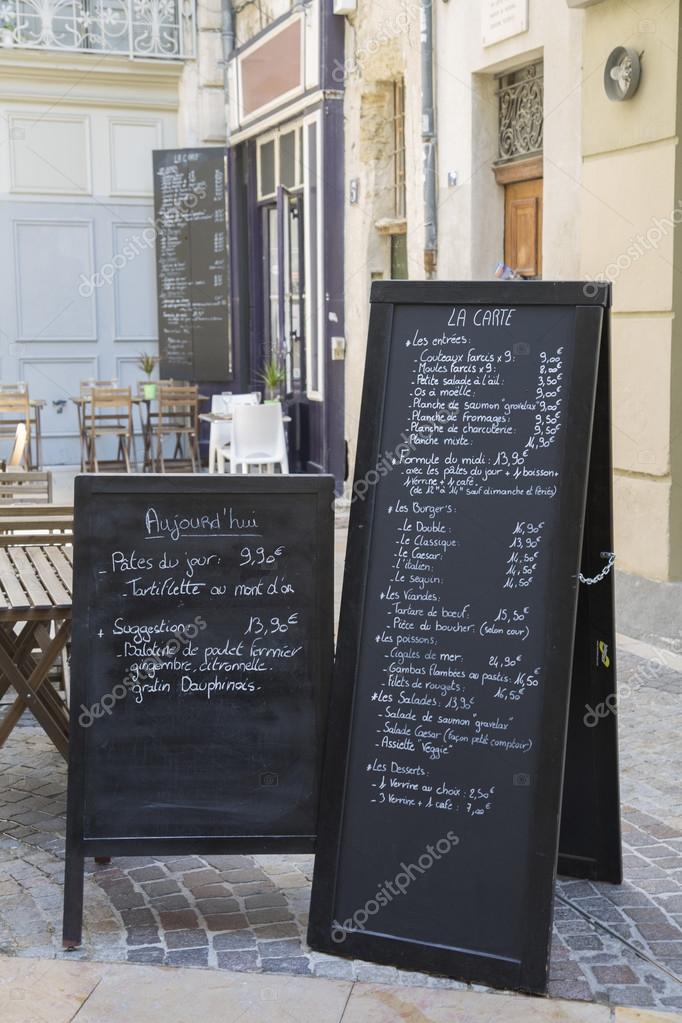 LA CARTE
5
Aujourd'hui
- Pâtes du jour: 9,90€
- Tartiflette au mont d'or
+ Suggestion: 13,90€
- Balotine de poulet fermier
gingembre, citronnelle.
gratin Dauphinois.
LA CARTE
* Les entrées:
- Couteaux farcis x 9: 9,00€
- Moules farcis x 9: 8,00€
- Petite salade à l'ail: 3,50€
- Os à moëlle: 9,00€
- Planche de saumon "gravelax" 9,00€
- Planche de fromages: 9,50€
- Planche de charcuterie: 9,50€
- Planche mixte: 14,90€
* Formule du midi: 13,90€
- avec les pâtes du jour + 1 boisson+
1 Verrine + 1 café.
(de 12h à 14h sauf dimanche et fériés)
* Les Burger's:
- Le Double: 16,90€
- Le Classique: 13,90€
- Le Caesar: 14,50€
- L'italien: 14,50€
- Le seguin: 14,50€
* Les Viandes:
- Tartare de bœuf: 15,50€
- Pièce du boucher: (selon cour)
* Les poissons:
- Cigales de mer: 24,90€
- Gambas flambées au pastis: 16,50€
- Filets de rougets: 16,50€
* Les Salades: 13,90€
- Salade de saumon "gravelax"
- Salade Caesar (façon petit comptoir)
- Assiette "Veggie"
* Les Desserts:
- 1 Verrine au choix: 2,50€
- 3 Verrine + 1 café: 7,00€
depositphotos